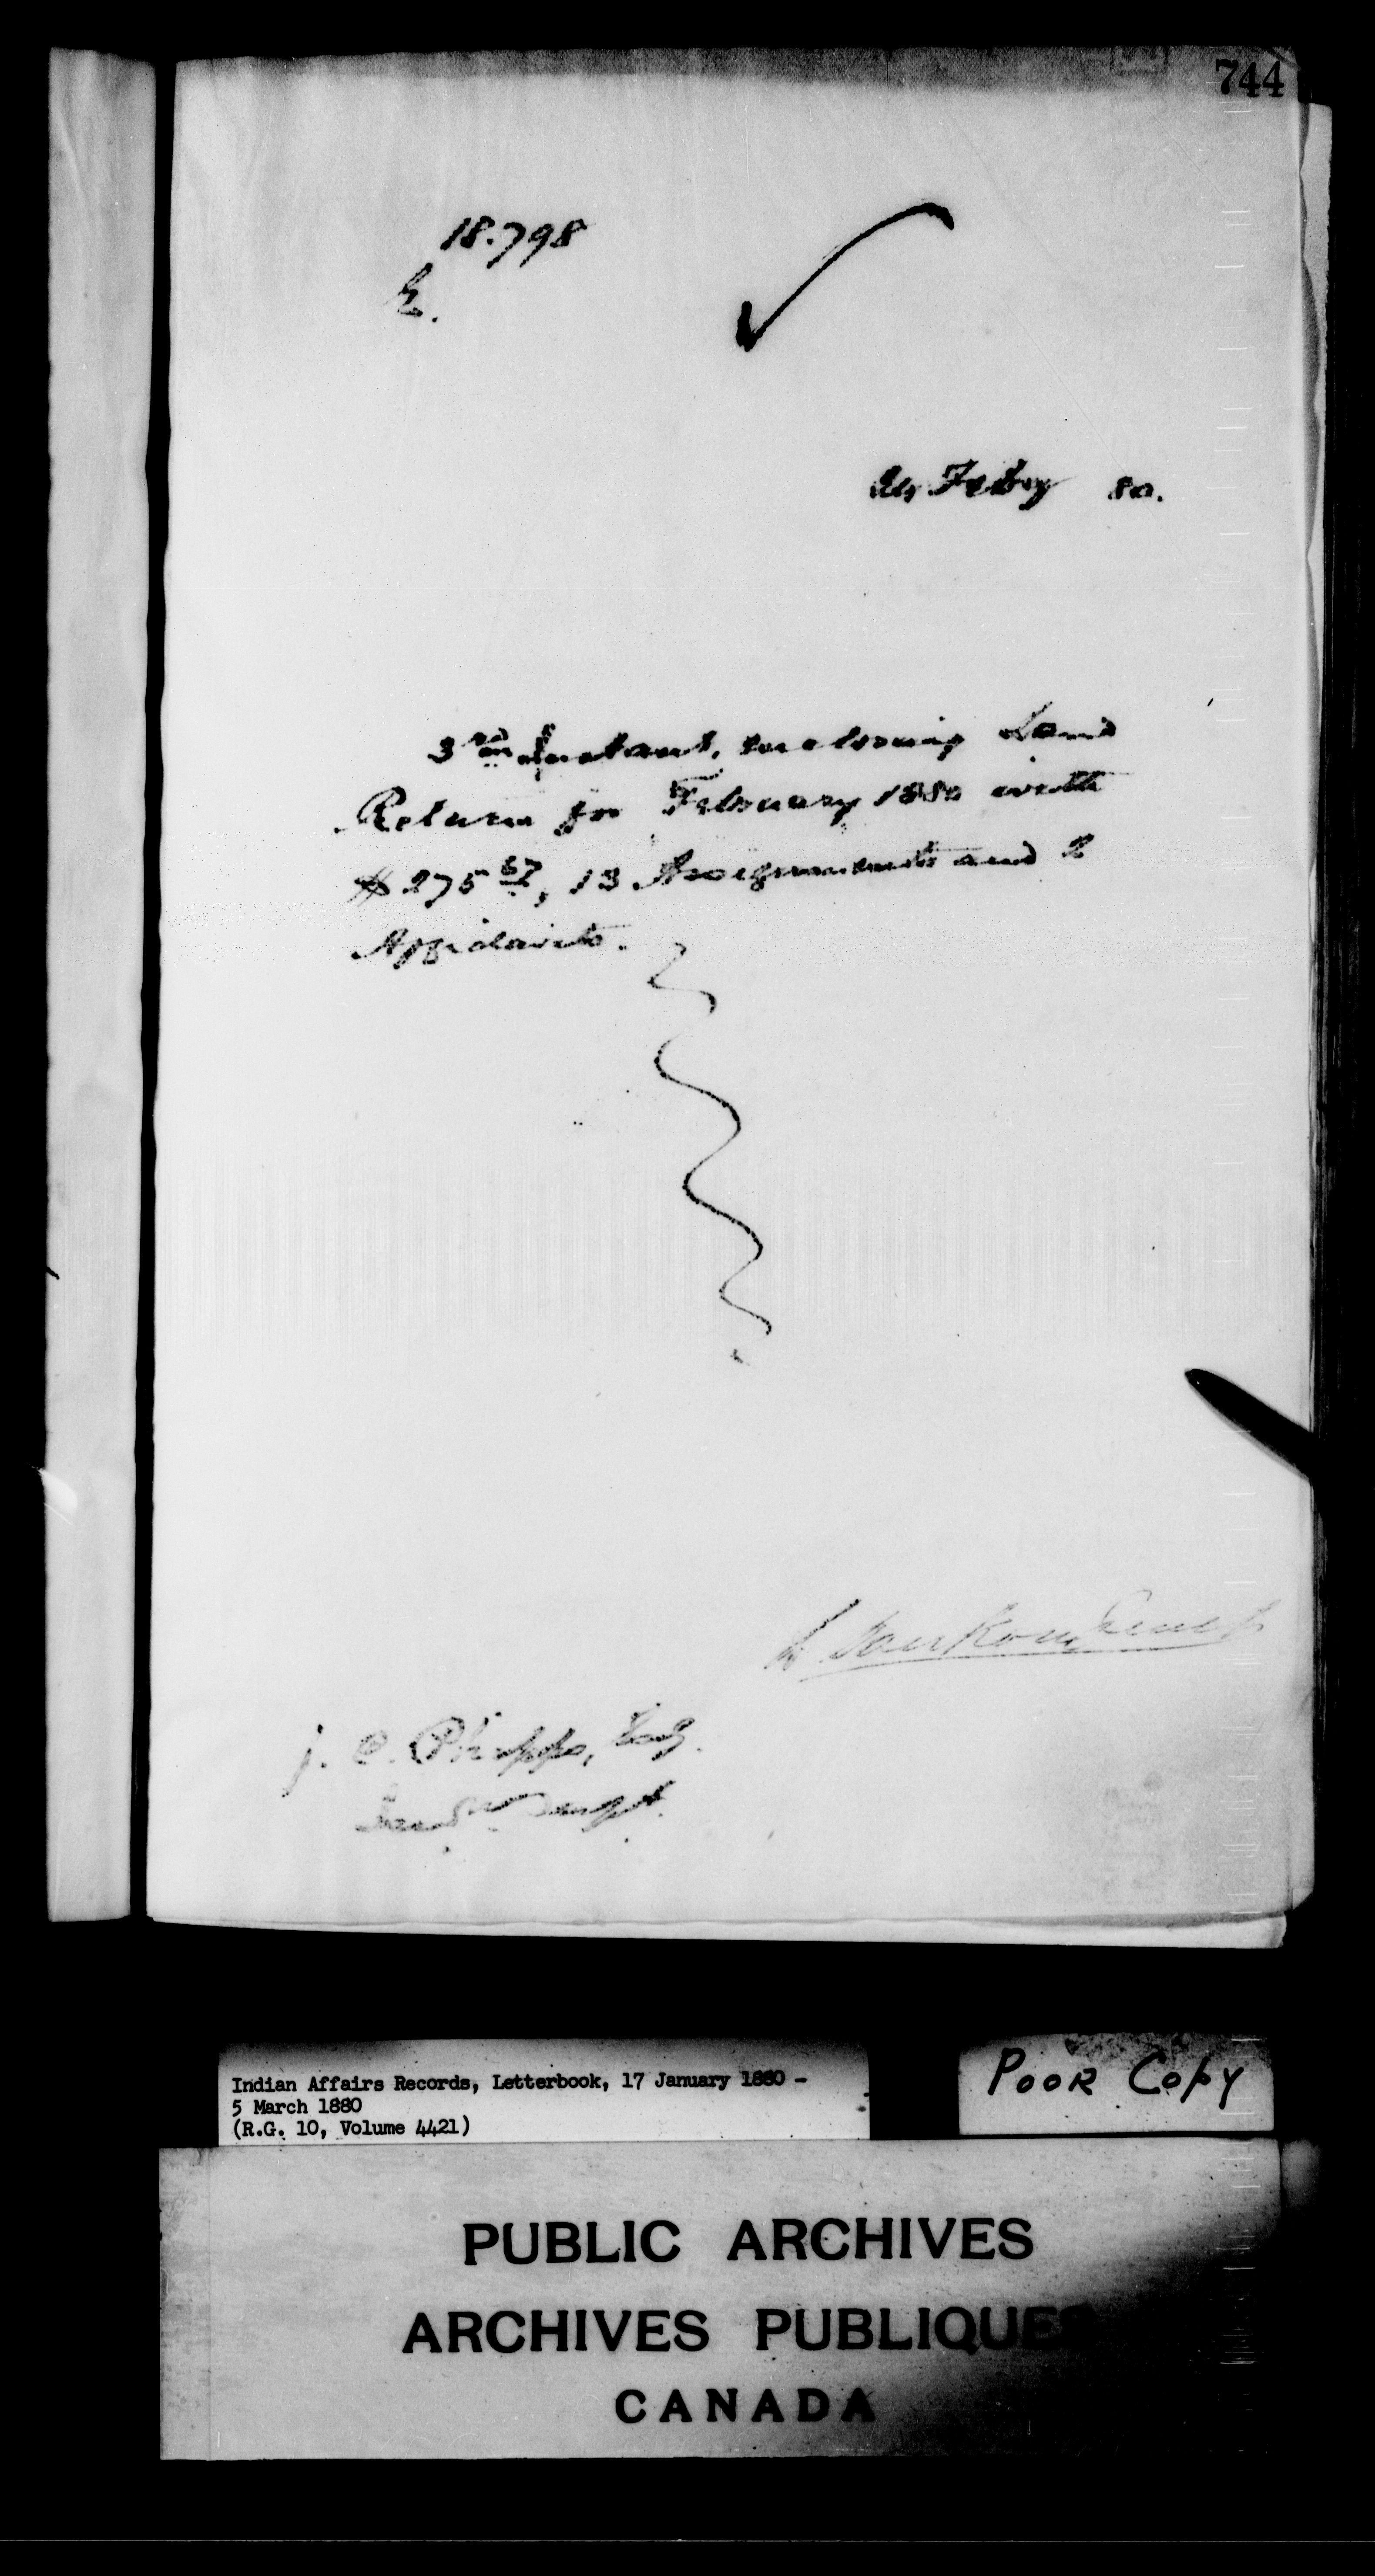 744
18.798
L.
24 Feby 80.
3rd Instant, enclosing Land
Return for February 1880 with
$275 57, 13 Assignments and 2
Affidavits.
L Vankoughnet
J. C. Phipps, Esq.
Ind Supt.
Indian Affairs Records, Letterbook, 17 January 1880 -
5 March 1880
(R.G. 10, Volume 4421)
POOR COPY
PUBLIC ARCHIVES
ARCHIVES PUBLIQUES
CANADA